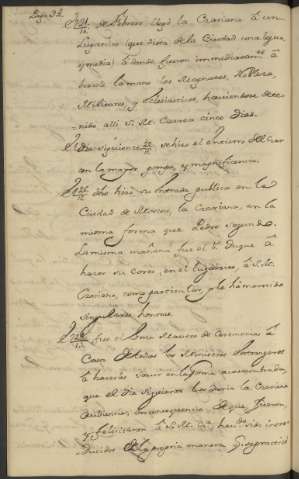 Page 32.
El 21/12 de Febrero llegó la Czariana à un
Lugarcito (que dista de la Ciudad una legua
y media) à donde fueron immediatam.te à
besarle la mano los Magnates, Nobleza,
Militares, y Eclesiasticos, haviendose dete-
nido alli S. M. Czarea cinco dias.
El dia siguiente 22 se hizo el entierro del Czar
con la mayor pompa, y magnificencia.
dho hizo su entrada publica en la
Ciudad de Moscou, la Czariana, en la
misma forma que Pedro segundo.
La misma mañana fue el S. Duque à
hacer su corte, en el lugarcito, à S. M.
Czariana, como particular, y le hà merecido
singulares honras.
fue el Maestro de Ceremonias à
Casa de todos los Ministros Estrangeros
à hacerles saver en la forma acostumbrada,
que el dia siguiente les daria la Czariana
Audiencia, en consequencia de que, fueron,
y felicitaron à S. M. haviendo sido intro-
ducidos de la propria manera